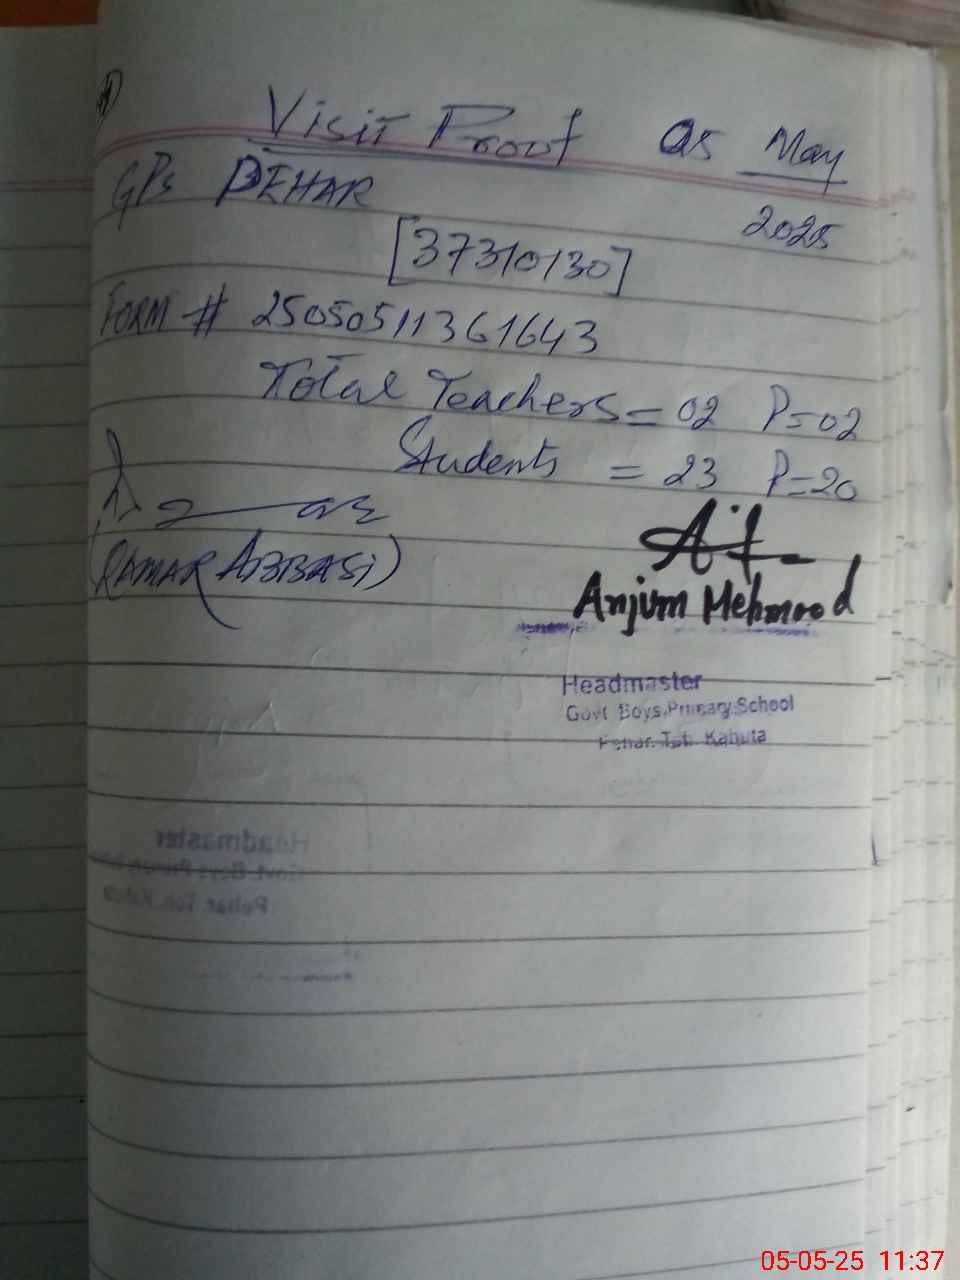 Visit Proof 05 May
2025
GPS PEHAR
[37310130]
FORM # 25050511361643
Total Teachers = 02 P=02
Students = 23 P=20
(QAMAR ABBASI)
Anjum Mehmood
Headmaster
Govt Boys Primary School
Pehar. Teh. Kahuta
Headmaster
Govt. Boys
Pehar. Teh.
05-05-25 11:37